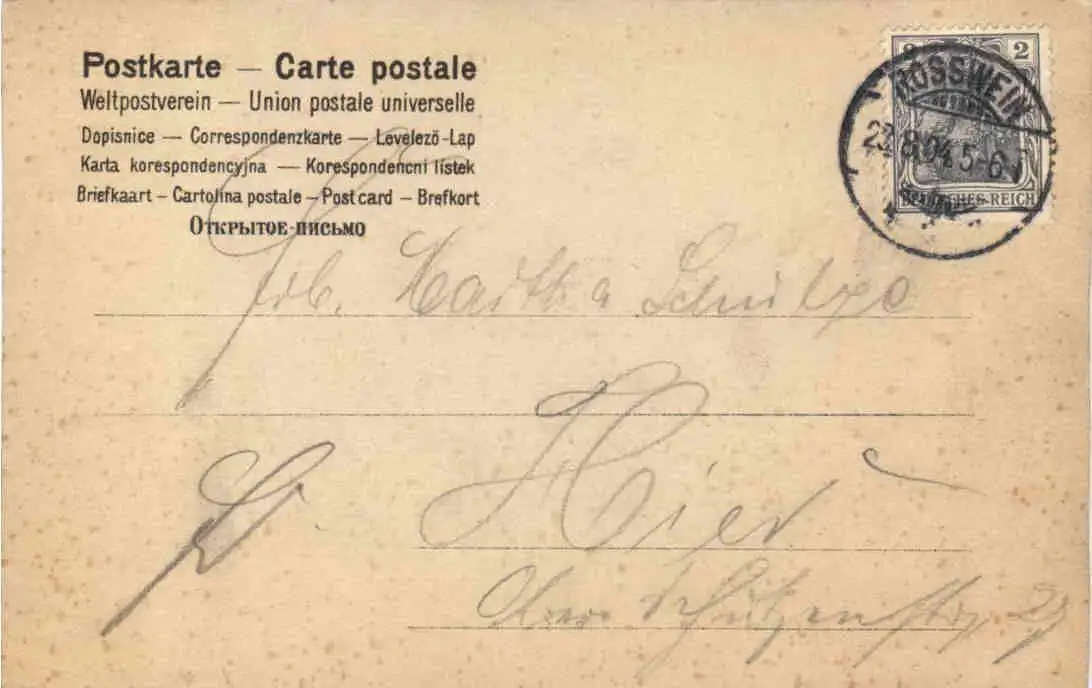 Postkarte — Carte postale
Weltpostverein — Union postale universelle
Dopisnice — Correspondenzkarte — Levelező-Lap
Karta korespondencyjna — Korespondencni lístek
Briefkaart – Cartolina postale – Post card – Brefkort
Открытое письмо
2
ROSSWEIN
23.8.04.5-6
DEUTSCHES REICH
Frl. Martha Schulze
Hier
Schützenstr. 29